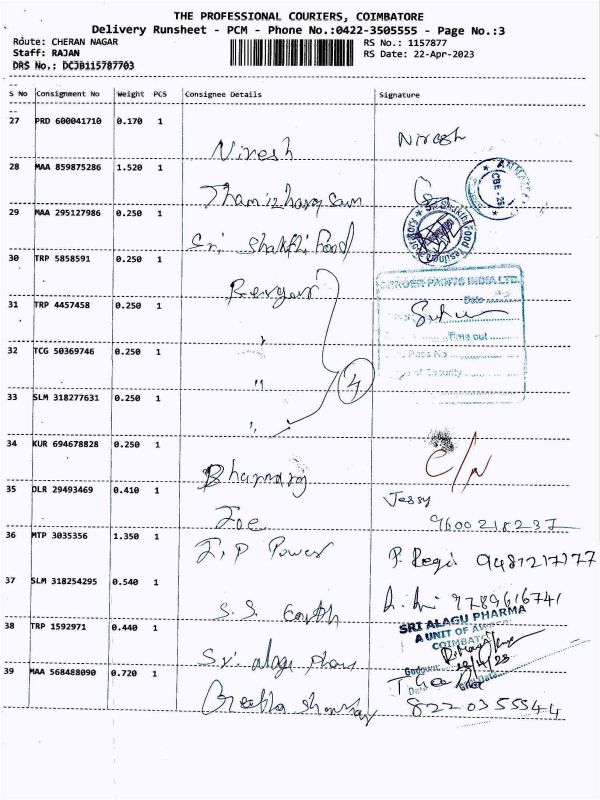 THE PROFESSIONAL COURIERS, COIMBATORE
Delivery Runsheet - PCM - Phone No.:0422-3505555 - Page No.:3
Route: CHERAN NAGAR
RS No.: 1157877
Staff: RAJAN
RS Date: 22-Apr-2023
DRS No.: DCJB115787703
S No Consignment No Weight PCS Consignee Details Signature
27 PRD 600041710 0.170 1
Niresh Niresh
28 MAA 859875286 1.520 1
CBE - 28
29 MAA 295127986 0.250 1
Sri Shakthi Food
Sri Shakthi Food Testing
30 TRP 5858591 0.250 1
BERGER PAINTS INDIA LTD.
Date
31 TRP 4457458 0.250 1
Time out
32 TCG 50369746 0.250 1
"
Pass No
4
of Security
33 SLM 318277631 0.250 1
"
34 KUR 694678828 0.250 1
C/N
35 DLR 29493469 0.410 1
Jessy
Joe 9600218237
36 MTP 3035356 1.350 1
J.P Power P. Regi 9487217177
37 SLM 318254295 0.540 1
9789616741
S.S. Earth
SRI ALAGU PHARMA
A UNIT OF
38 TRP 1592971 0.440 1
COIMBATORE
Sri alagu Pharma
Godown:
22/4/23
39 MAA 568488090 0.720 1
Date
8220355544